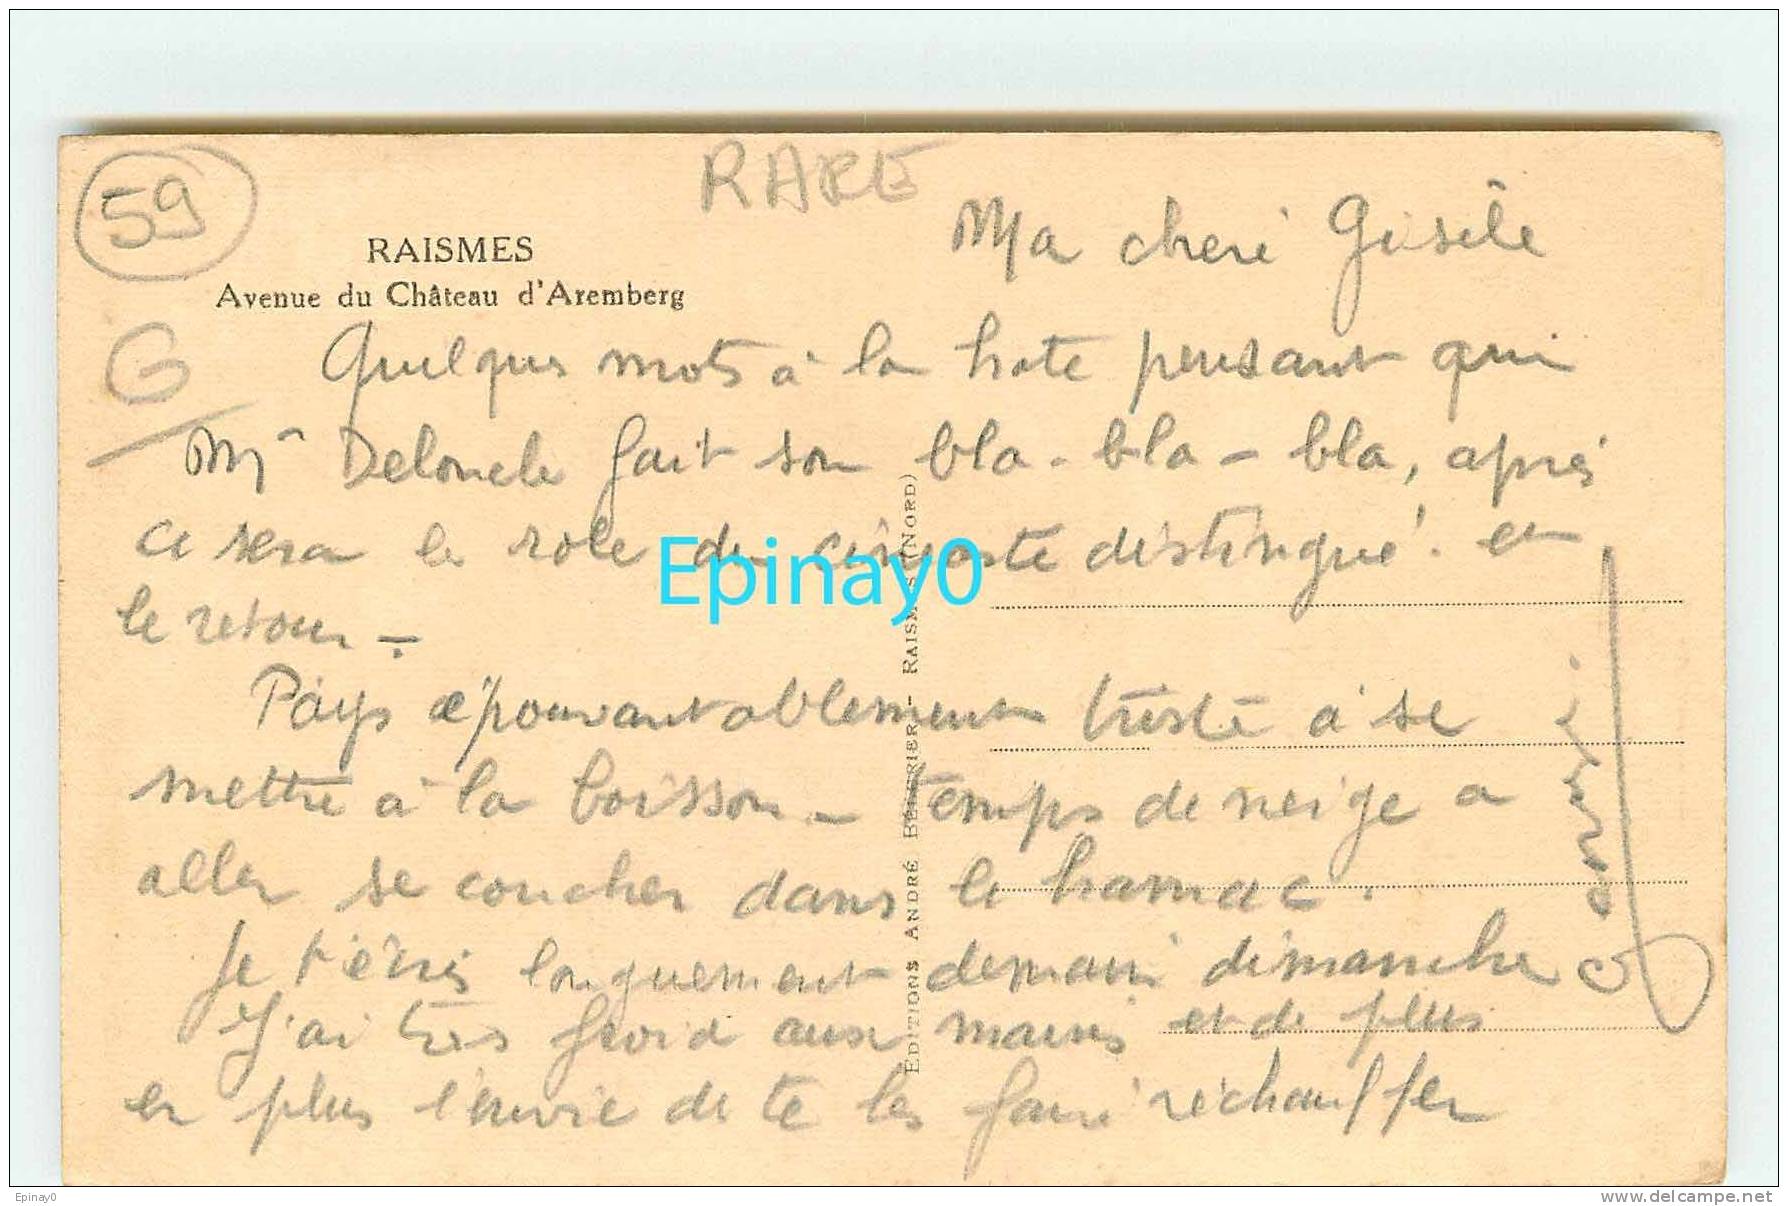 59
RARE
RAISMES
Avenue du Château d'Aremberg
G
Ma cheri Gisèle
Quelques mots à la hate pensant que
Mr Deloncle fait son bla - bla - bla, après
ce sera le role du cinéaste distingué. et
le retour -
Pays épouvantablement triste à se
mettre à la boisson - temps de neige a
aller se coucher dans le hamac.
Je t'écris longuement demain dimanche
J'ai très froid aux mains et de plus
en plus l'envie de te les faire réchauffer
EDITIONS ANDRÉ - RAISMES (NORD)
Epinay0
Epinay0
www.delcampe.net